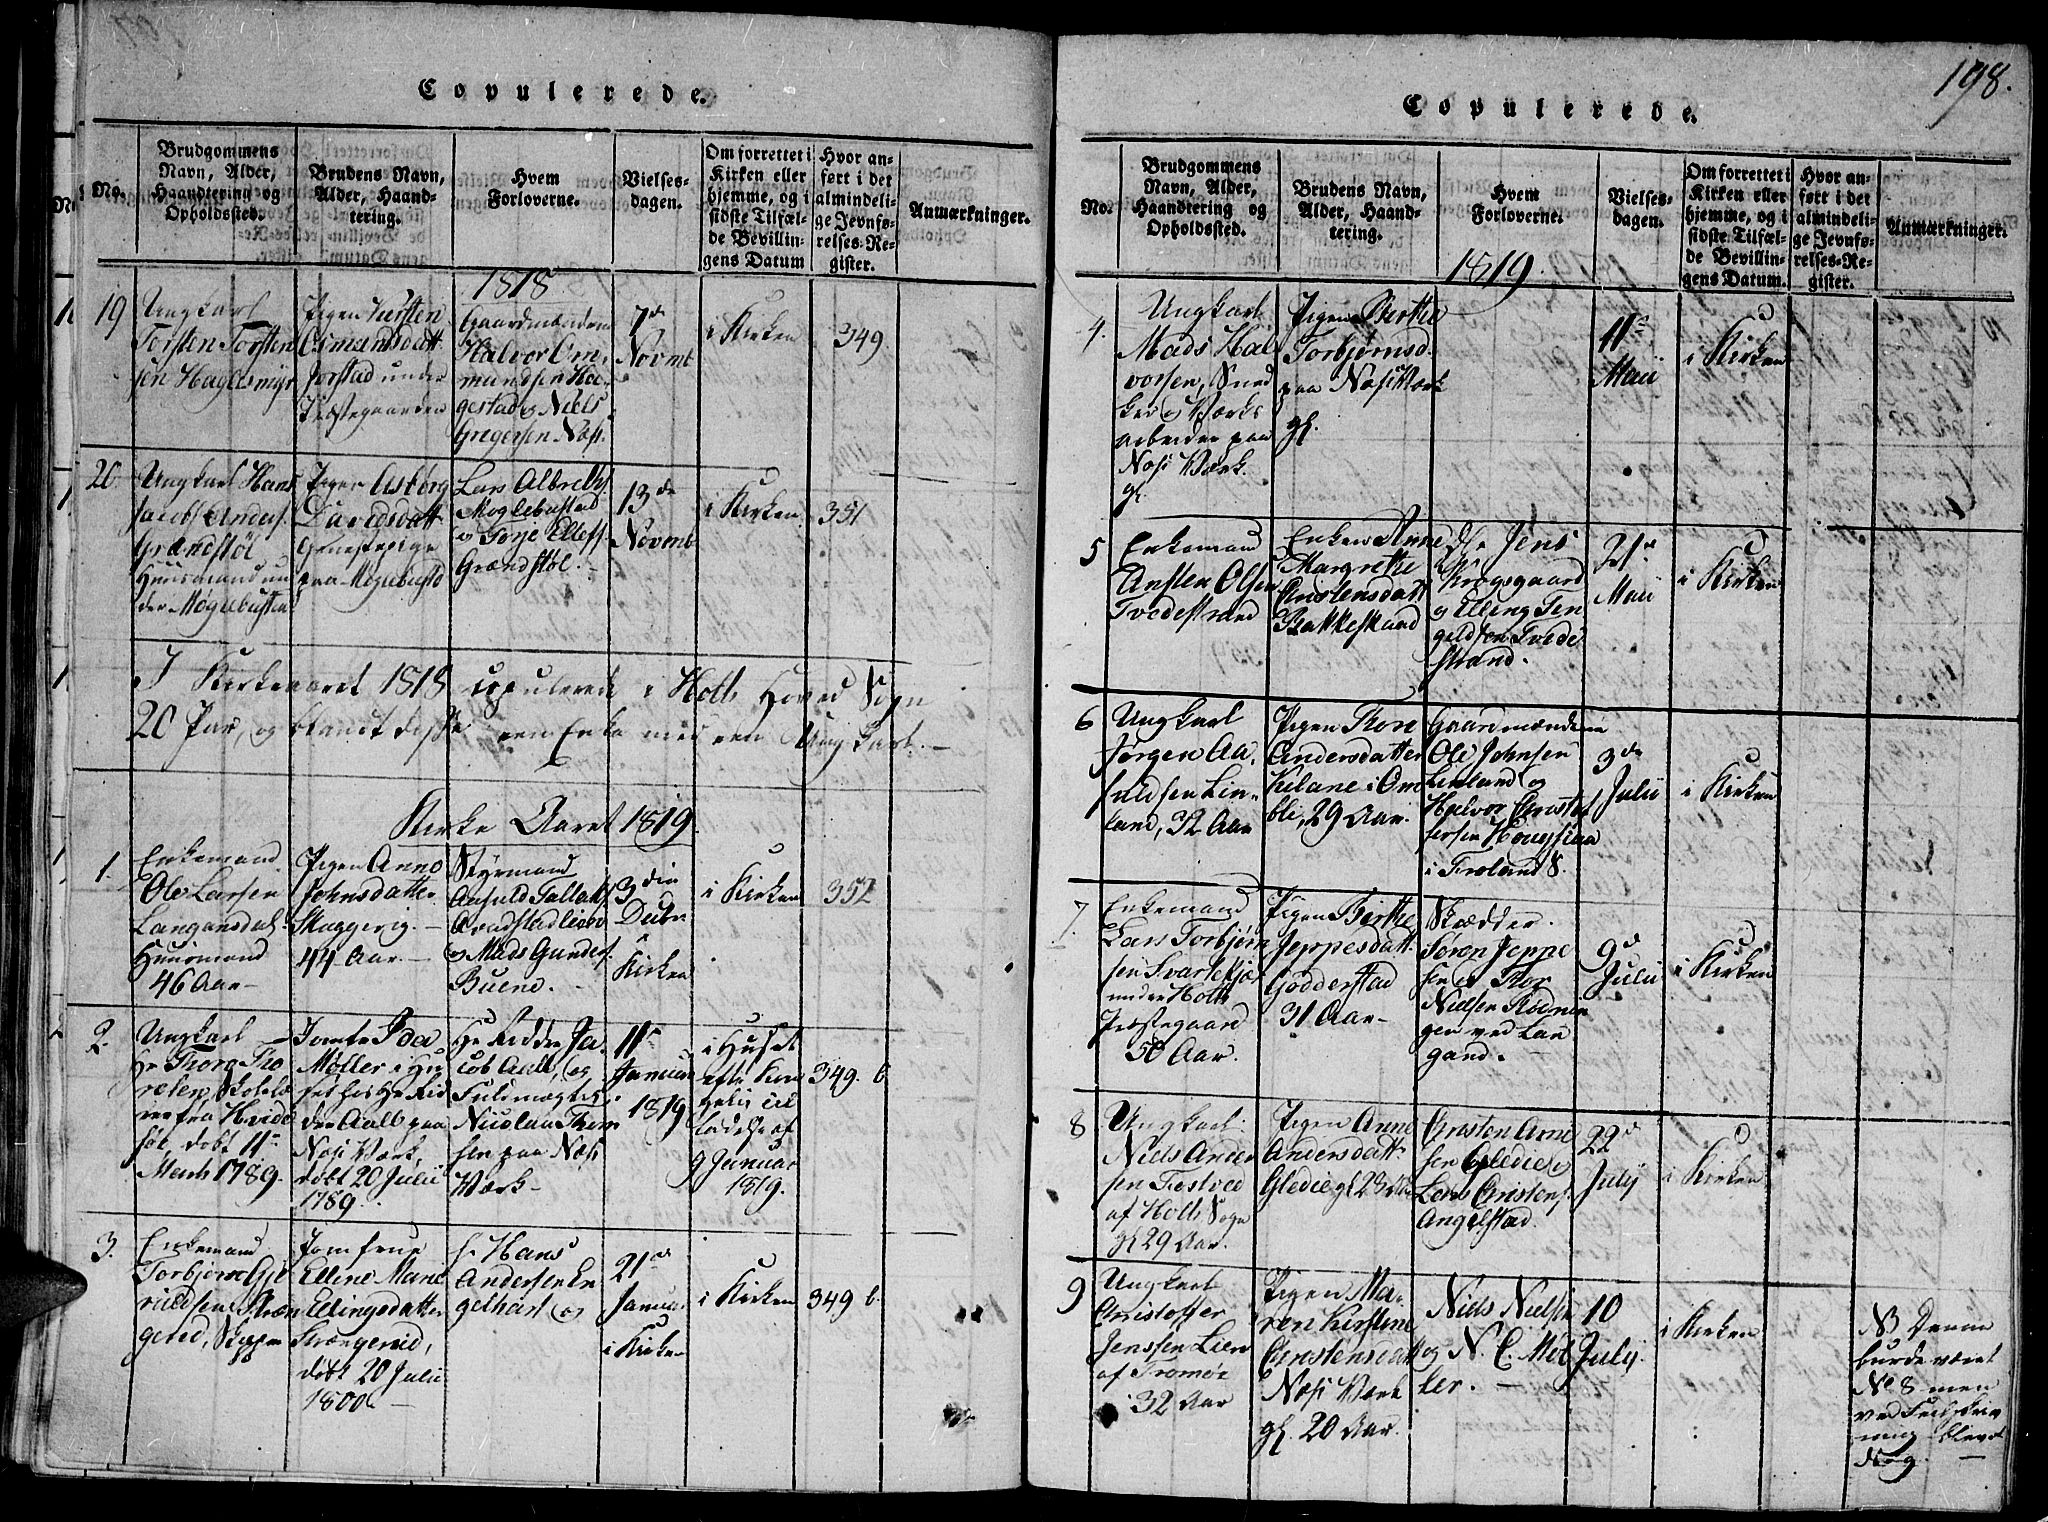 Copulerede.
No.
Brudgommens
Navn, Alder,
Haandtering og
Opholdssted.
Brudens Navn,
Alder, Haand-
tering.
Hvem
Forloverne.
Vielses-
dagen.
Om forrettet i
Kirken eller
hjemme, og i
sidste Tilfæl-
de Bevillin-
gens Datum
Hvor an-
ført i det
almindeli-
ge Jevnfø-
relses-Re-
gister.
Anmærkninger.
1818.
19
Ungkarl
Torsten Torsten
sen Hagesmyr
Pigen Kirsten
Osmundsdatt.
Jorstad under
Præstegaarden
Gaardmændene
Halvor Om
mundsen Ha-
gestad og Niels
Gregersen Næs.
7de
Novemb
i Kirken
349
20
Ungkarl Hans
Jacob Anders.
Grændstøl
Huusmand un
der Møglebustad
Pigen Asbørg
Davidsdatt
Tjenestepige
paa Møglebustd
Lars Albreths.
Moglebustad
og Torje Ellefs.
Grændstøl.
13de
Novemb
i Kirken
351
I Kirkeaaret 1818 copulerede i Holts Hoved Sogn
20 Par, og blandt disse een Enke med een Ungkarl. –
Kirke Aaret 1819.
1.
Enkemand
Ole Larsen
Langansdal
Huusmand
46 Aar –
Pigen Anne
Johnsdatter
Skaggerig. –
44 Aar. –
Styrmand
Anfeld Tallaks.
og Mads Gunders.
Buene. –
3die
Decbr
Kirken
i Kirken
352
2.
Ungkarl
Hr Thorg Tho
resen, Skolelæ
rer fra Hvide
søe, døbt 11te
Marts 1789.
Jomfr Ida
Møller i Hu
set hos Hr Rid
der Aall paa
Næs Værk,
døbt 20 Julii
1789.
Hr Ridder Ja
cob Aall, og
Fuldmægtig
Nicolai Thom
sen paa Næs
Værk –
11te
Januar
1819
i Huset
efter Kon
gelig til
ladelse af
9 Januar
1819.
349. b
3.
Enkemand
Torbjørn Gje
ruldsen Stræn
gered, Skipper
Jomfrue
Elline Marie
Ellingsdatter
Strængereid,
døbt 20 Julii
1800. –
Hr Hans
Andersen En
gelhart og
21de
Januar
i Kirke –
i Kirken
349 b.
198.
Copulerede.
No.
Brudgommens
Navn, Alder,
Haandtering og
Opholdssted.
Brudens Navn,
Alder, Haand-
tering.
Hvem
Forloverne.
Vielses-
dagen.
Om forrettet i
Kirken eller
hjemme, og i
sidste Tilfæl-
de Bevillin-
gens Datum.
Hvor an-
ført i det
almindeli-
ge Jevnfø-
relses-Re-
gister.
Anmærkninger.
1819.
4.
Ungkarl
Mads Hal
vorsen, Sned
ker og Værks
arbeider paa
Næs Værk.
gl.
Pigen Berthe
Torbjørnsd.
paa Næs Værk
gl.
11te
Maii
i Kirken
5
Enkemand
Ansten Olsen
Tvedestrand
Enken Anne
Margrethe
Christensdatt
Bakkeskaad
Hr Jens
Krogsgaard
og Elling Ten
geldsen Tvede
strand.
21de
Maii
i Kirken
6
Ungkarl
Jørgen Aa
suldsen Lin-
land, 32 Aar
Pigen Thore
Andersdatter
Kilane i Om
bli, 29 Aar.
Gaardmændene
Ole Johnsen
Linland og
Halvor Christof
fersen Hougsiaa
i Froland S.
3de
Julii
i Kirken
7.
Enkemand
Lars Torbjørn
sen Svartekjær
under Holts
Præstegaard
50 Aar.
Pigen Birthe
Jeppesdatt
Godderstad
31 Aar –
Skrædder
Søren Jeppe
sen og Thor
Nielsen Rødnin
gen ved Lan
gand. –
9de
Julii
i Kirken
8
Ungkarl
Niels Ander
sen Trestved
af Holts Sogn
gl 29 Aar.
Pigen Anne
Andersdatt
Gledie gl 23 Aar
Christen Arne
sen Gledie og
Lars Christens.
Angelstad.
22de
Julij
i Kirken
9
Ungkarl
Christoffer
Jenssen Lien
af Tromøe
32 Aar
Pigen Ma-
ren Kirstine
Christensdatt
Næs Værk
gl. 20 Aar.
Niels Nielsen
og N. C. Møl
ler. –
10
Julij.
i Kirken
NB Denne
burde været
No 8 men
ved Feilskriv
ning blevet
dog. –